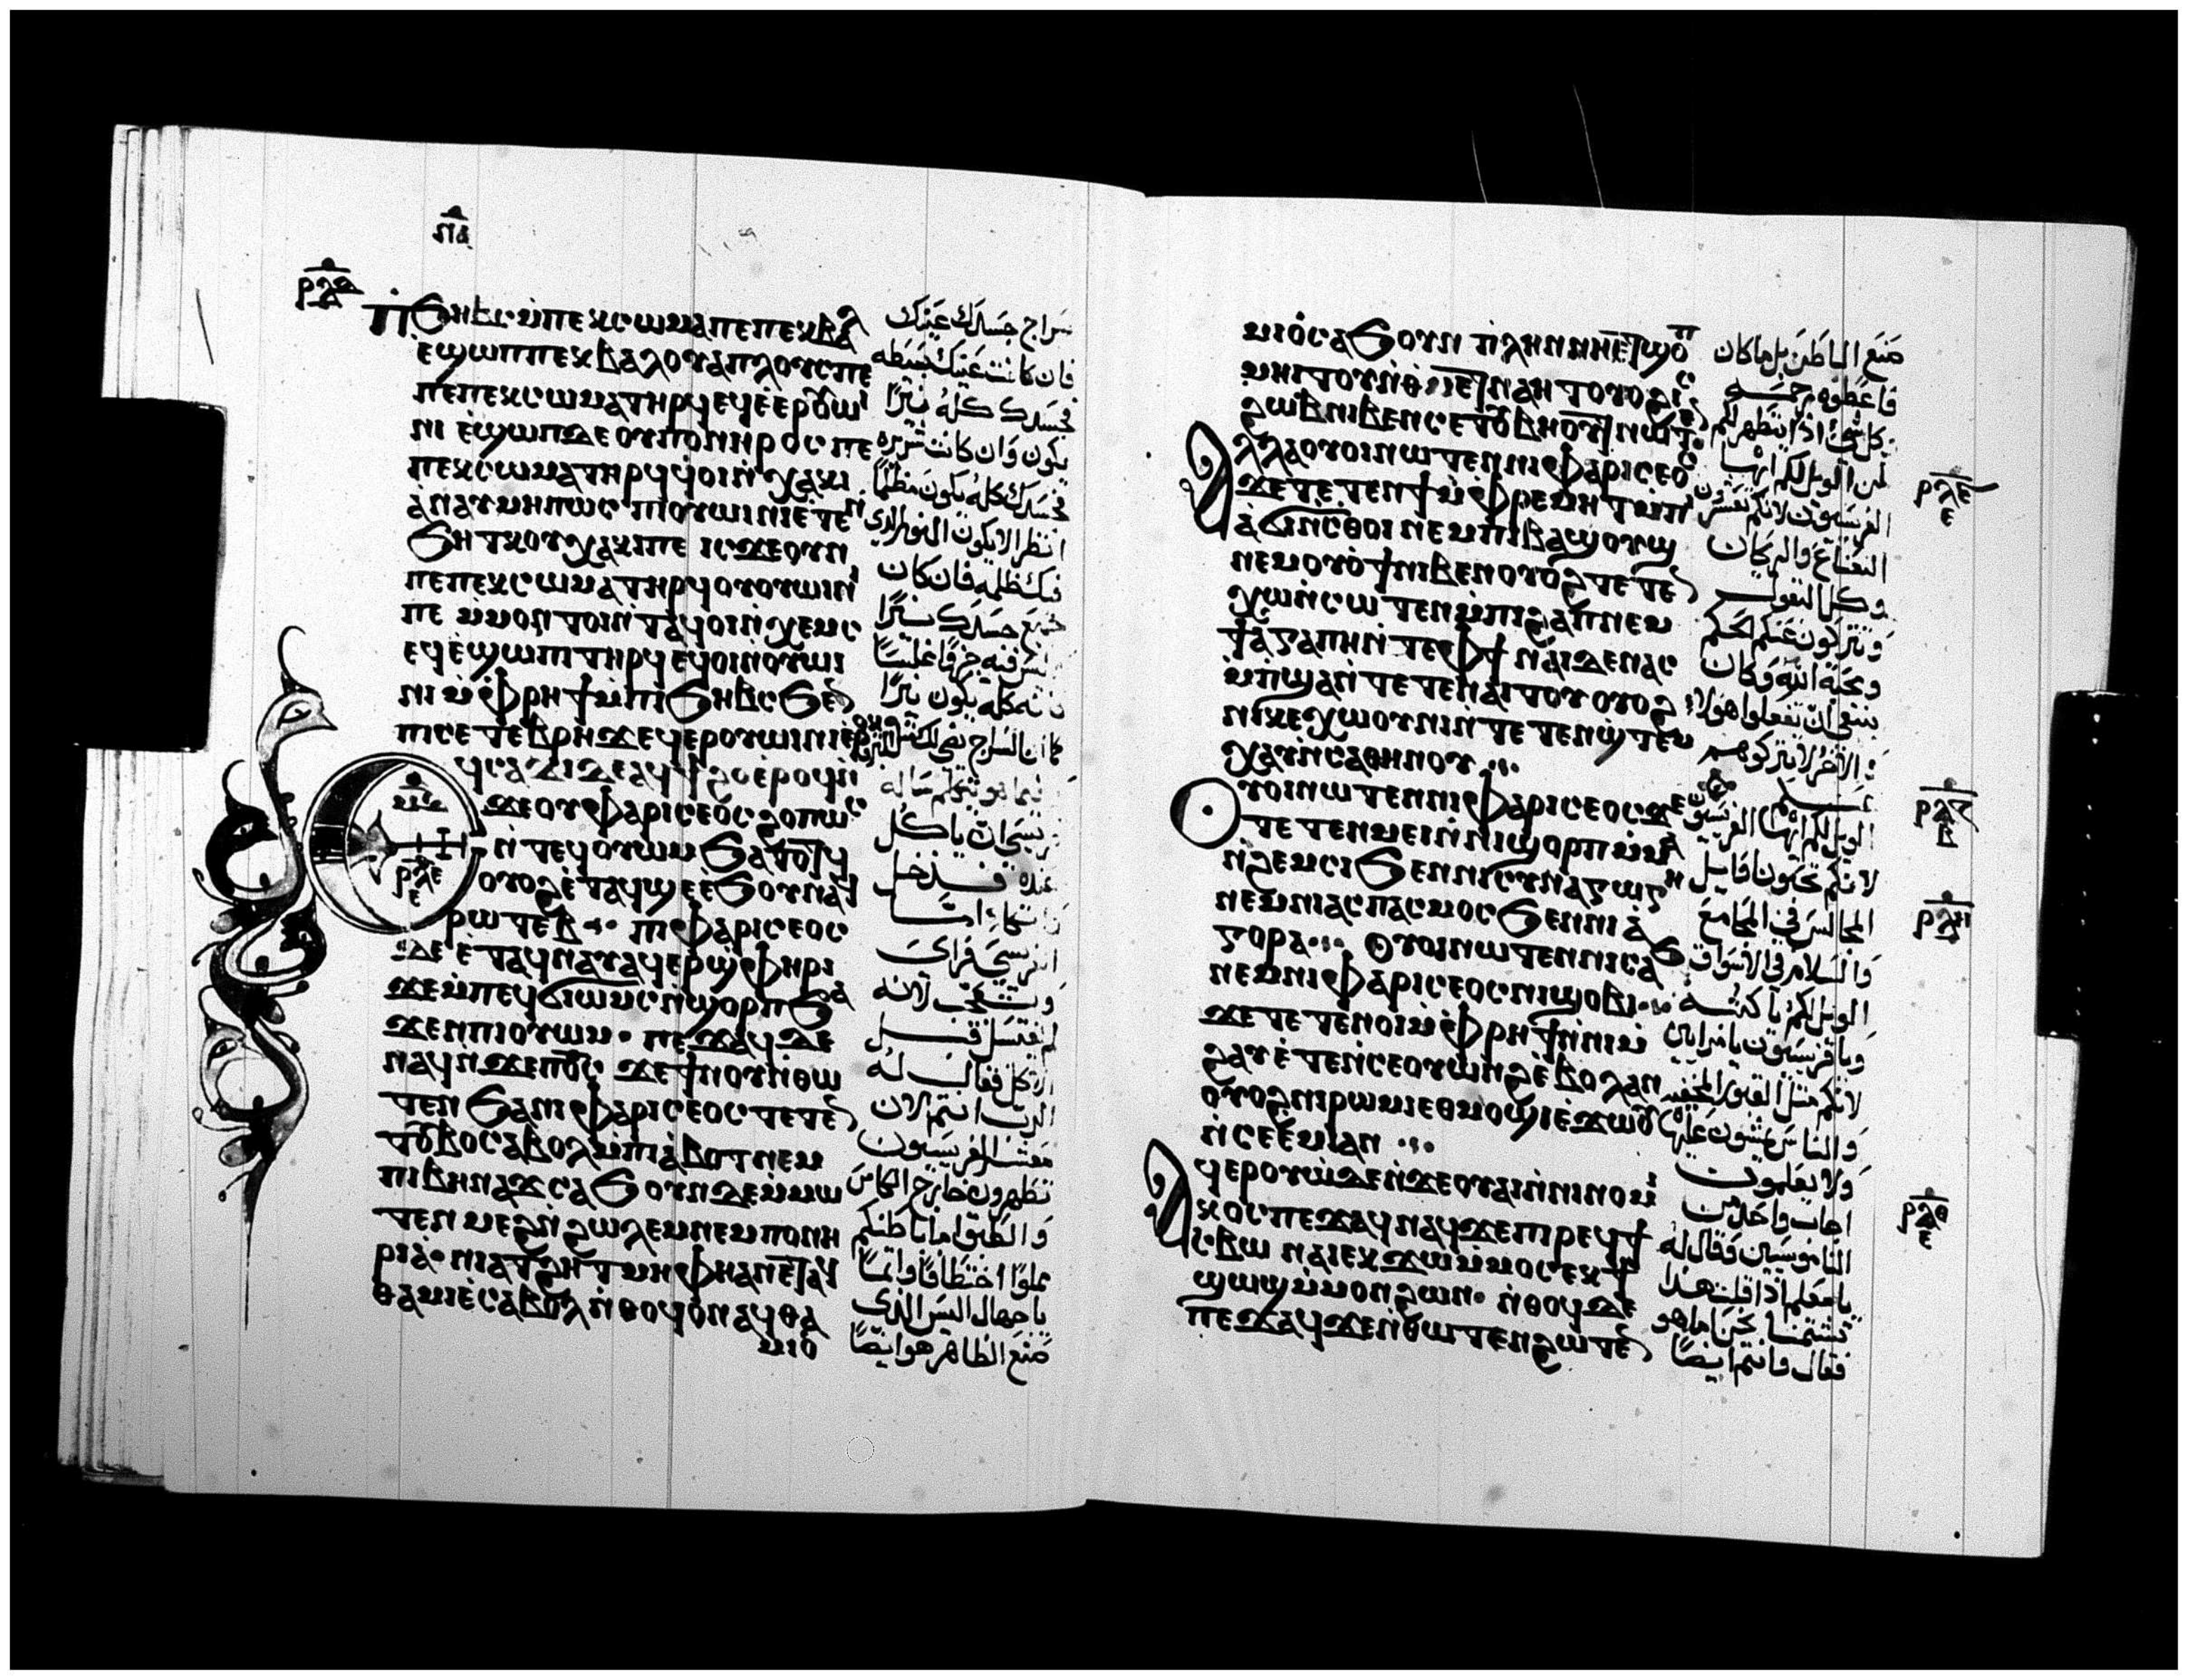 ⲣⲗⲇ
ⲡⲓϧⲏⲃⲥ ⲙ̇ⲡⲉⲕⲥⲱⲙⲁ ⲡⲉ ⲡⲉⲕⲃⲁⲗ
ⲉ̇ϣⲱⲡ ⲡⲉⲕⲃⲁⲗ ⲟⲩⲁⲡⲗⲟⲩⲥ ⲡⲉ
ⲡⲉⲕⲥⲱⲙⲁ ⲧⲏⲣϥ ⲉϥⲉ̇ⲉⲣⲟⲩⲱⲓ
ⲛⲓ ⲉ̇ϣⲱⲡ ⲇⲉ ⲟⲩⲡⲟⲛⲏⲣⲟⲥ ⲡⲉ
ⲡⲉⲕⲥⲱⲙⲁ ⲧⲏⲣϥ ϥⲟⲓ ⲛ̇ⲭⲁⲕⲓ
ⲁ̇ⲛⲁⲩ ⲙⲏⲡⲱⲥ ⲡⲓⲟⲩⲱⲓⲛⲓ ⲉ̇ⲧⲉⲛ
ϧⲏⲧⲕ ⲟⲩⲭⲁⲕⲓ ⲡⲉ ⲓⲥϫⲉ ⲟⲩⲛ
ⲡⲉⲕⲥⲱⲙⲁ ⲧⲏⲣϥ ⲟⲩⲟⲩⲱⲓⲛⲓ
ⲡⲉ ⲙ̇ⲙⲟⲛ ⲧⲟⲓ ⲛ̇ⲧⲁϥ ⲟⲓ ⲛ̇ⲭⲉⲙⲥ
ⲉϥⲉ̇ϣⲱⲡⲓ ⲧⲏⲣϥ ⲉϥⲟⲓ ⲛ̇ⲟⲩⲱⲓ
ⲛⲓ ⲙ̇ⲫⲣⲏϯ ⲙ̇ⲡⲓϧⲏⲃⲥ ϧⲉⲛ
ⲡⲥⲉⲧⲉⲃⲣⲏϫ ⲉϥⲉⲣⲟⲩⲱⲓⲛⲓ ⲉ̇ⲣⲟⲕ
ϥⲥⲁϫⲓ ⲇⲉ ⲁϥϯϩⲟ ⲉ̇ⲣⲟϥ ⲛ̇
ϫⲉ ⲟⲩⲫⲁⲣⲓⲥⲉⲟⲥ ϩⲟⲡⲱⲥ
ⲛ̇ⲧⲉϥⲟⲩⲱⲙ ϧⲁⲧⲟⲧϥ
ⲟⲩⲟϩ ⲉ̇ⲧⲁϥϣⲉ ⲉ̇ϧⲟⲩⲛ ⲁϥ
ⲣⲱⲧⲉⲃ ⲡⲓⲫⲁⲣⲓⲥⲉⲟⲥ
ⲇⲉ ⲉ̇ⲧⲁϥⲛⲁⲩ ⲁϥⲉⲣϣⲫⲏⲣⲓ
ϫⲉ ⲙ̇ⲡⲉϥϭⲓⲱⲙⲥ ⲛ̇ϣⲟⲣⲡ ϧⲁ
ϫⲉⲛ ⲡⲓⲟⲩⲱⲙ ⲡⲉϫⲁϥ ⲇⲉ
ⲛⲁϥ ⲛ̇ϫⲉ ⲡ̅ⲟ̅ⲥ̅ ϫⲉ ϯⲛⲟⲩ ⲛ̇ⲑⲱ
ⲧⲉⲛ ϧⲁ ⲛⲓⲫⲁⲣⲓⲥⲉⲟⲥ ⲧⲉⲧⲉⲛ
ⲧⲟⲩⲃⲟ ⲥⲁⲃⲟⲗ ⲙ̇ⲡⲓⲁ̇ⲫⲟⲧ ⲛⲉⲙ
ⲡⲓⲃⲓⲛⲁϫ ⲥⲁϧⲟⲩⲛ ⲇⲉ ⲙ̇ⲙⲱ
ⲧⲉⲛ ⲙⲉϩ ⲛ̇ϩⲱⲗⲉⲙ ⲛⲉⲙ ⲡⲟⲛⲏ
ⲣⲓⲁ̇ ⲛⲓⲁⲧϩⲏⲧ ⲙⲏ ⲫⲏ ⲁⲛ ⲉⲧⲁϥ
ⲑⲁⲙⲓⲉ̇ ⲥⲁⲃⲟⲗ ⲛ̇ⲑⲟϥ ⲟⲛ ⲁϥⲑⲁ
ⲙⲓⲟ̇
سراج جسدك عينك
فان كانت عينك بسيطه
فجسدك كله نيرًا
يكون وان كانت شريره
فجسدك كله يكون مظلمًا
انظر الا يكون النور الذي
فيك ظلمه فان كان
جميع جسدك نيرًا
ليس فيه جزءًا غلسًا
فانه كله يكون نيرًا
كما ان السراج يضي لك
فيما هو يتكلم ساله
فريسي ان ياكل
عنده فدخل
واتكا
الفريسي فراى
وتعجب لانه
لم يغتسل قبل
الاكل فقال له
الرب انتم الان
معشر الفريسيون
تطهرون خارج الكاس
والطبق اما باطنكم
مملوًا اختطافًا واثمًا
يا جهال اليس الذي
صنع الظاهر هو ايضًا
ⲙⲓⲟ̇ ⲥⲁϧⲟⲩⲛ ⲡⲗⲏⲛ ⲛⲏ ⲉⲧϣⲟⲡ
ⲙⲏⲓⲧⲟⲩ ⲛ̇ⲑⲙⲉⲧⲛⲁⲏⲧ ⲟⲩⲟϩ ⲓⲥ
ϩⲱⲃ ⲛⲓⲃⲉⲛ ⲥⲉⲧⲟⲩⲃⲏⲟⲩⲧ ⲛⲱⲧⲉⲛ
ⲁⲗⲗⲁ ⲟⲩⲟⲓ ⲛⲱⲧⲉⲛ ⲛⲓⲫⲁⲣⲓⲥⲉⲟⲥ
ϫⲉ ⲧⲉⲧⲉⲛϯ ⲙ̇ⲫⲣⲉⲙⲏⲧ ⲙ̇ⲡⲓ
ⲁ̇ϭⲓⲛⲥⲑⲟⲓ ⲛⲉⲙ ⲡⲓⲃⲁϣⲟⲩϣ
ⲛⲉⲙ ⲟⲩⲟ̇ϯ ⲛⲓⲃⲉⲛ ⲟⲩⲟϩ ⲧⲉⲧⲉⲛ
ⲭⲱ ⲛ̇ⲥⲱⲧⲉⲛ ⲙ̇ⲡⲓϩⲁⲡ ⲛⲉⲙ
ϯⲁⲅⲁⲡⲏ ⲛ̇ⲧⲉ ⲫϯ ⲛⲁⲓ ⲇⲉ ⲛⲁⲥ
ⲙ̇ⲡϣⲁ ⲛ̇ⲧⲉⲧⲉⲛⲁⲓⲧⲟⲩ ⲟⲩⲟϩ
ⲛⲓⲕⲉⲭⲱⲟⲩⲛⲓ ⲛ̇ⲧⲉⲧⲉⲛϣⲧⲉⲙ
ⲭⲁⲩ ⲛ̇ⲥⲁⲑⲏⲛⲟⲩ
ⲟⲩⲟⲓ ⲛⲱⲧⲉⲛ ⲛⲓⲫⲁⲣⲓⲥⲉⲟⲥ ϫⲉ
ⲧⲉⲧⲉⲛⲙⲉⲓ ⲛ̇ⲛⲓϣⲟⲣⲡ ⲙ̇ⲙⲁ
ⲛ̇ϩⲉⲙⲥⲓ ϧⲉⲛ ⲛⲓⲥⲩⲛⲁⲅⲱⲅⲏ
ⲛⲉⲙ ⲛⲓⲁⲥⲡⲁⲥⲙⲟⲥ ϧⲉⲛ ⲛⲓⲁ̇
ⲅⲟⲣⲁ ⲟⲩⲟⲓ ⲛⲱⲧⲉⲛ ⲛⲓⲥⲁϧ
ⲛⲉⲙ ⲛⲓⲫⲁⲣⲓⲥⲉⲟⲥ ⲛⲓϣⲟⲃⲓ
ϫⲉ ⲧⲉⲧⲉⲛⲟⲓ ⲙ̇ⲫⲣⲏϯ ⲛ̇ⲛⲓⲙ̇
ϩⲁⲩ ⲉ̇ⲧⲉⲛⲥⲉⲟⲩⲱⲛϩ ⲉ̇ⲃⲟⲗ ⲁⲛ
ⲟⲩⲟϩ ⲛⲓⲣⲱⲙⲓ ⲉⲑⲙⲟϣⲓ ⲉ̇ϫⲱⲟⲩ
ⲛ̇ⲥⲉⲉ̇ⲙⲓ ⲁⲛ
ⲁϥⲉⲣⲟⲩⲱ̇ ⲇⲉ ⲛ̇ϫⲉ ⲟⲩⲁⲓ ⲛ̇ⲛⲓⲛⲟⲙⲓ
ⲕⲟⲥ ⲡⲉϫⲁϥ ⲛⲁϥ ϫⲉ ⲡⲓⲣⲉϥϯ
ⲥⲃⲱ ⲛⲁⲓ ⲉⲕϫⲱ ⲙ̇ⲙⲟⲥ ⲉⲕϯ
ϣⲱϣ ⲙ̇ⲙⲟⲛ ϩⲱⲛ ⲛ̇ⲑⲟϥ ⲇⲉ
ⲡⲉϫⲁϥ ϫⲉ ⲛ̇ⲑⲱⲧⲉⲛ ϩⲱⲧⲉⲛ
صنع الباطن بل ما كان
فاعطوه رحمه
كل شي اذا يتطهر لكم
لكن الويل لكم ايها
الفريسيون لانكم تعشرون
النعناع
وكل البقول
وتتركون عنكم الحكم
ومحبة الله وكان
ينبغي ان تفعلوا هولاء
والاخر لا تتركوهم
الويل لكم ايها الفريسيون
لانكم تحبون اوايل
المجالس في المجامع
والسلام في الاسواق
الويل لكم يا كتبه
ويا فريسيون يا مرايين
لانكم مثل القبور المخفيه
والناس يمشون عليها
ولا يعلمون
اجاب واحد من
الناموسيين وقال له
يا معلم اذا قلت هذا
تشتمنا نحن اما هو
فقال وانتم ايضًا
ⲣⲗⲏ
ⲣⲗⲑ